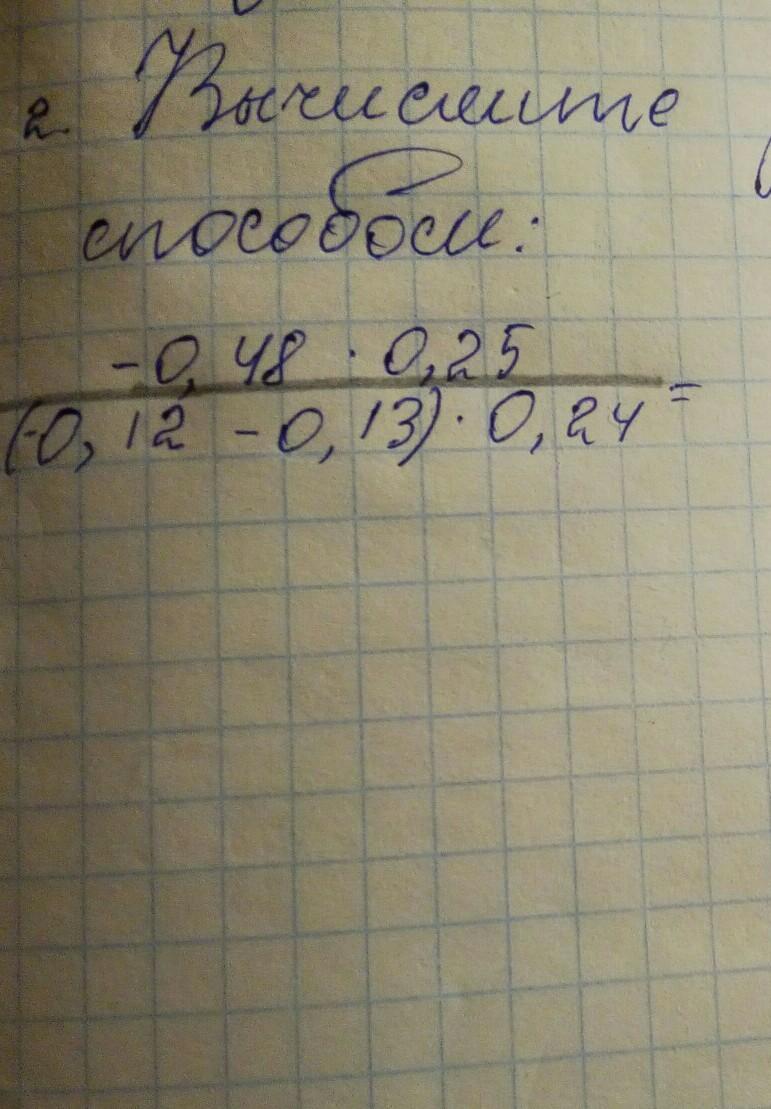 2. Вычислите
способом:
-0,48 · 0,25
(-0,12 - 0,13) · 0,24 =